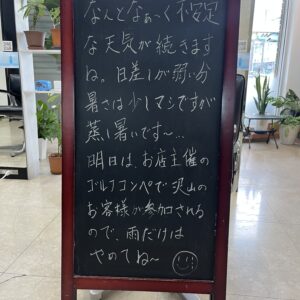 なんとなぁ〜く不安定
な天気が続きます
ね。日差しが弱い分
暑さは少しマシですが
蒸し暑いです〜…
明日は、お店主催の
ゴルフコンペで沢山の
お客様が参加される
ので、雨だけは
やめてね〜